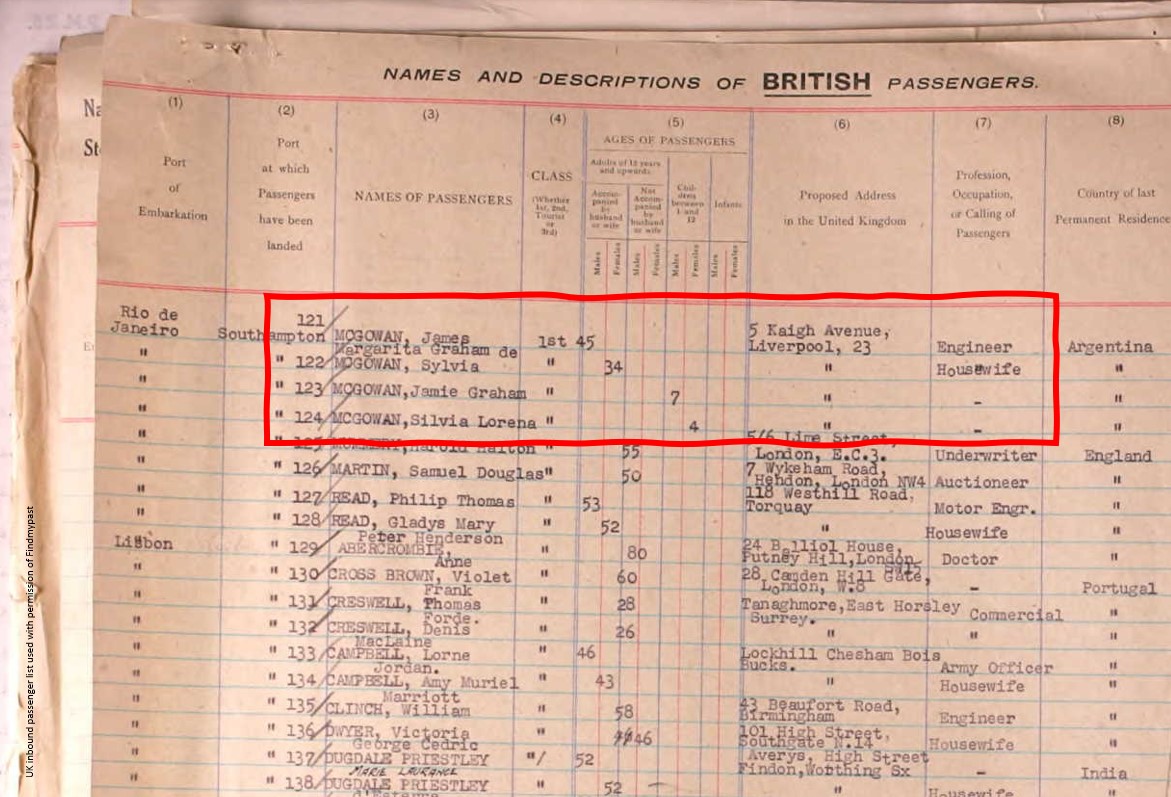 NAMES AND DESCRIPTIONS OF BRITISH PASSENGERS.
(1) (2) (3) (4) (5) (6) (7) (8)
Port of Embarkation
Port at which Passengers have been landed
NAMES OF PASSENGERS
CLASS (Whether 1st, 2nd, Tourist or 3rd)
AGES OF PASSENGERS
Adults of 12 years and upwards
Accompanied by husband or wife
Not Accompanied by husband or wife
Children between 1 and 12
Infants
Males Females Males Females Males Females Males Females
Proposed Address in the United Kingdom
Profession, Occupation, or Calling of Passengers
Country of last Permanent Residence
Na
St
Rio de Janeiro Southampton 121 MCGOWAN, James 1st 45 5 Kaigh Avenue, Liverpool, 23 Engineer Argentina
" " 122 Margarita Graham de MCGOWAN, Sylvia " 34 " Housewife "
" " 123 MCGOWAN, Jamie Graham " 7 " - "
" " 124 MCGOWAN, Silvia Lorena " 4 " - "
" " 125 Harold Halton " 55 5/6 Lime Street, London, E.C.3. Underwriter England
" " 126 MARTIN, Samuel Douglas " 50 7 Wykeham Road, Hendon, London NW4 Auctioneer "
" " 127 READ, Philip Thomas " 53 118 Westhill Road, Torquay Motor Engr. "
" " 128 READ, Gladys Mary " 52 " Housewife "
Lisbon " 129 Peter Henderson ABERCROMBIE, " 80 24 Balliol House, Putney Hill, London Doctor "
" " 130 Anne CROSS BROWN, Violet " 60 28, Camden Hill Gate, London, W.8 - Portugal
" " 131 Frank CRESWELL, Thomas " 28 Tanaghmore, East Horsley Surrey. Commercial "
" " 132 Forde. CRESWELL, Denis " 26 " " "
" " 133 MacLaine CAMPBELL, Lorne " 46 Lockhill Chesham Bois Bucks. Army Officer "
" " 134 Jordan. CAMPBELL, Amy Muriel " 43 " Housewife "
" " 135 Marriott CLINCH, William " 58 43 Beaufort Road, Birmingham Engineer "
" " 136 DWYER, Victoria " 46 101 High Street, Southgate N.14 Housewife "
" " 137 George Cedric DUGDALE PRIESTLEY "/ 52 Averys, High Street Findon, Worthing Sx - India
" " 138 MARIE LAURANCE DUGDALE PRIESTLEY " 52 " Housewife "
UK inbound passenger list used with permission of Findmypast